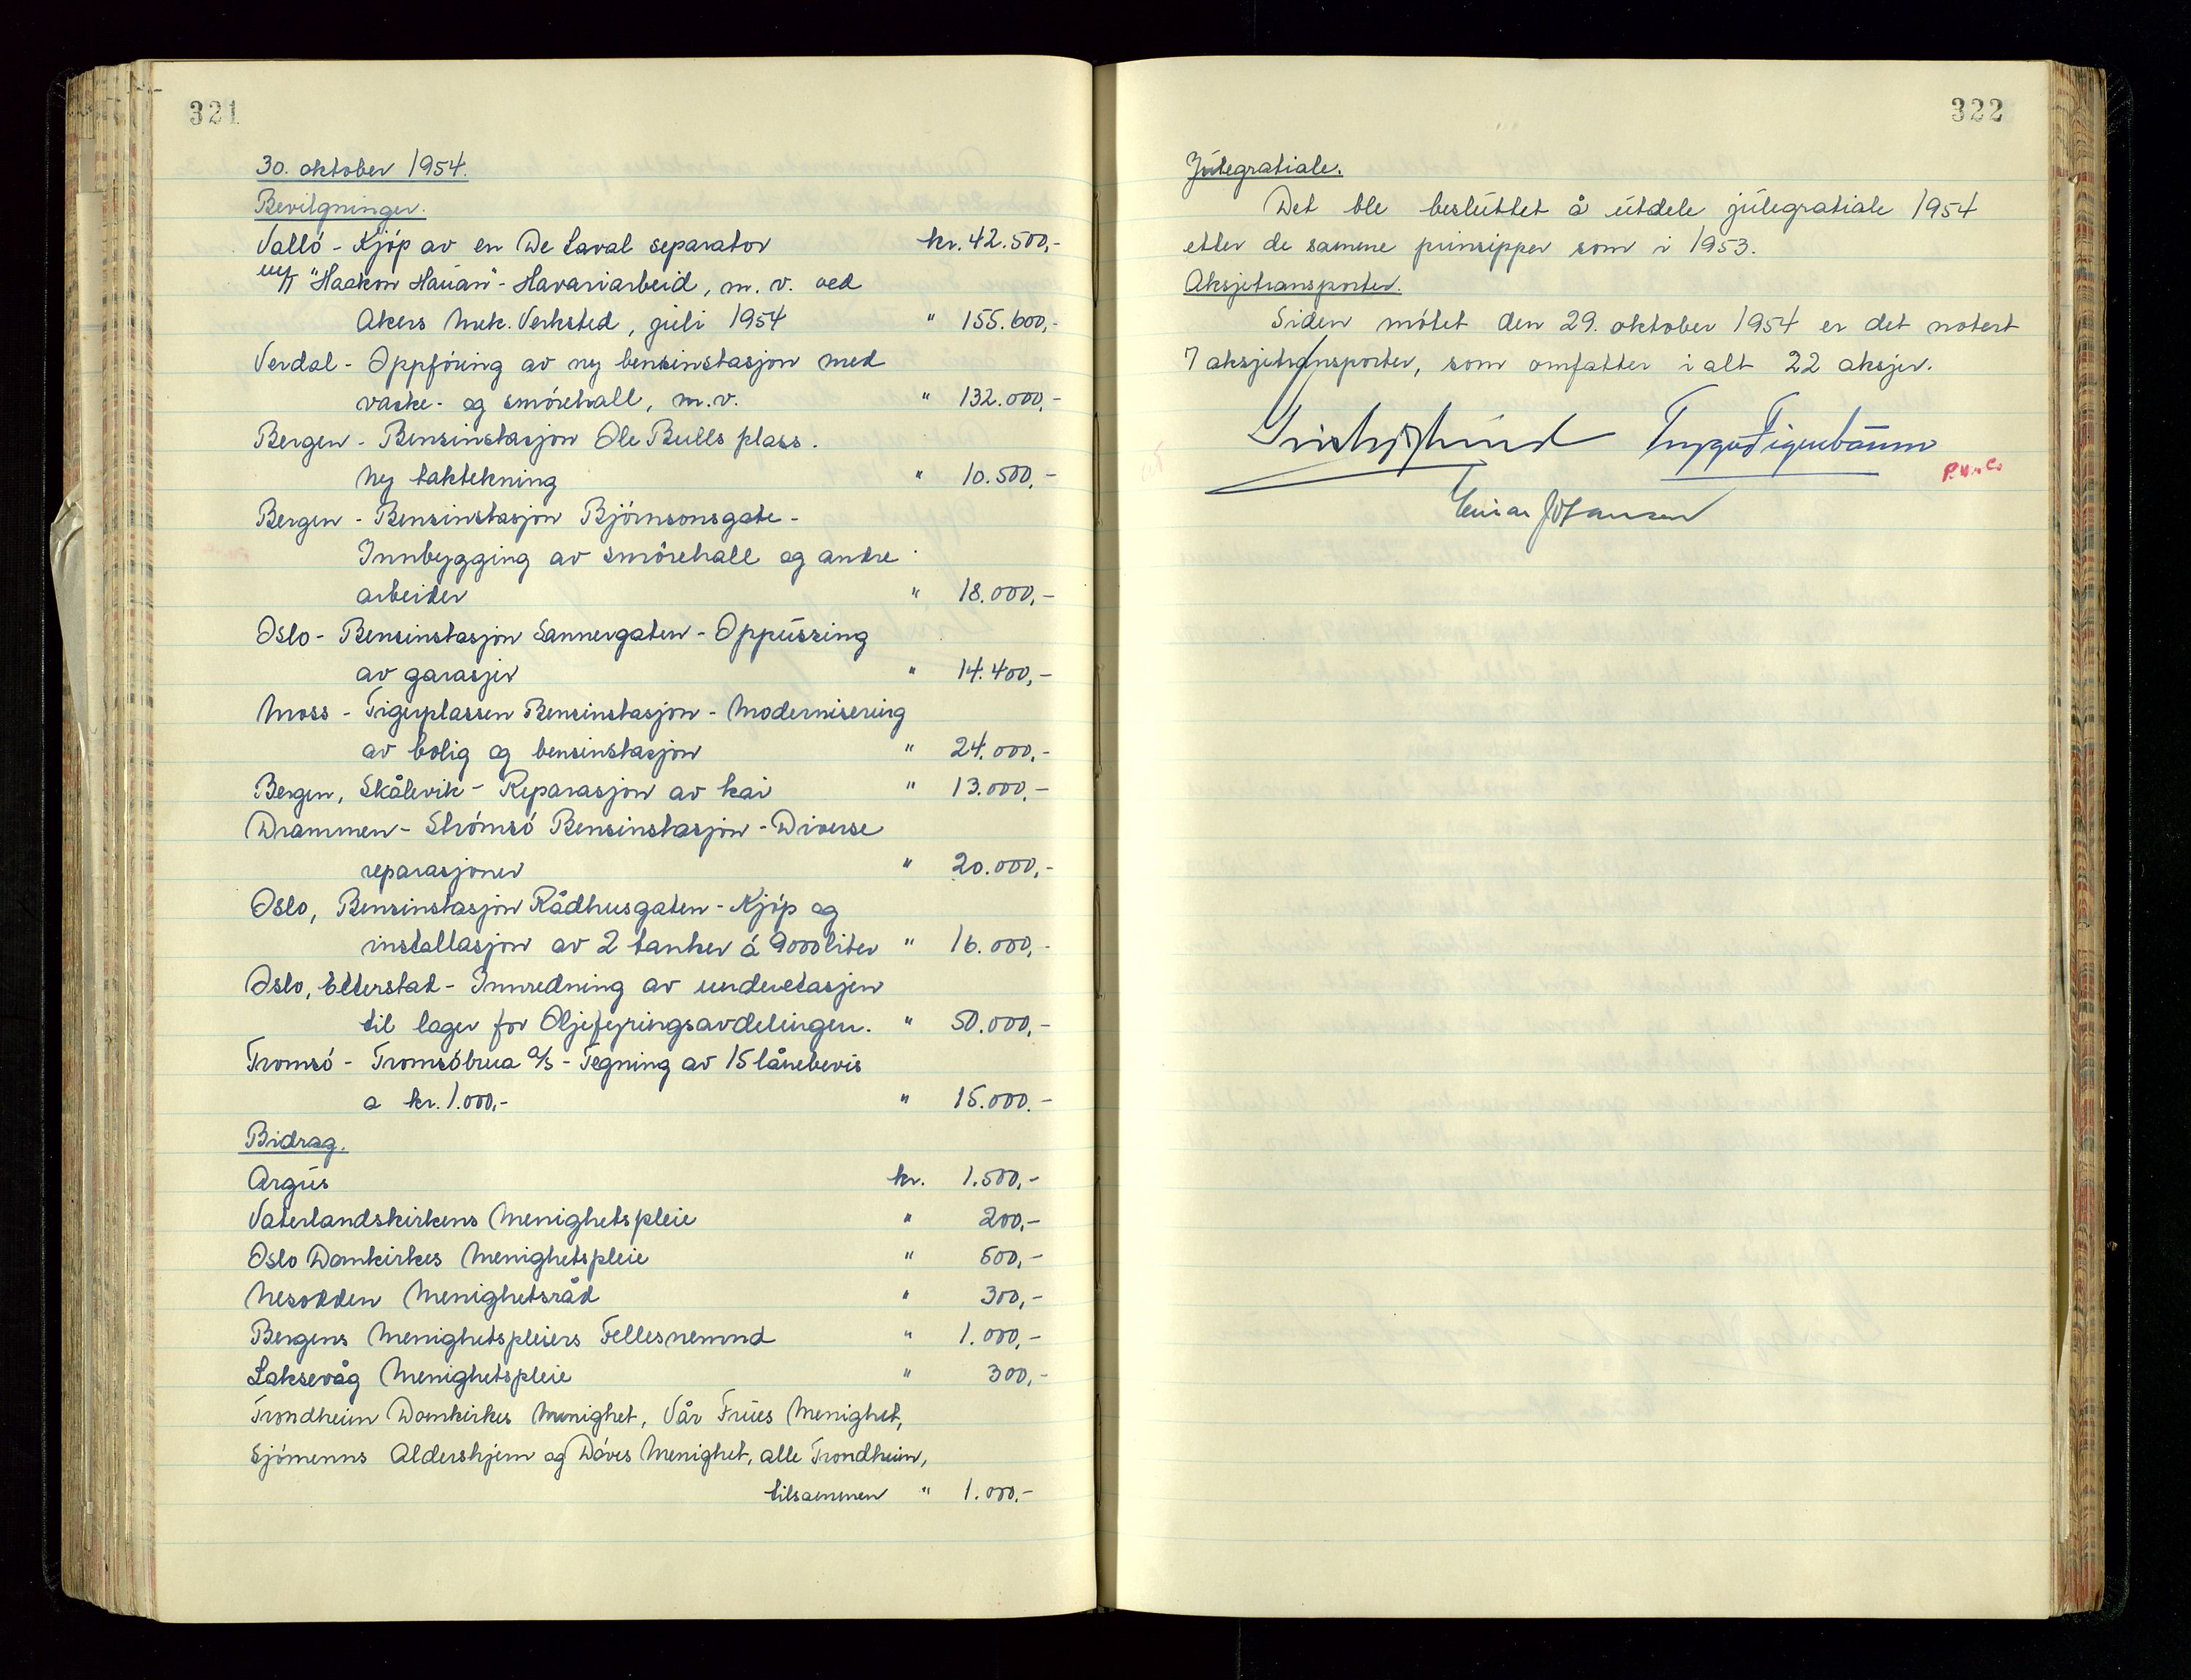 321
30. oktober 1954.
Bevilgninger.
Valló - Kjóp av en De Laval separator kr. 42.500,-
M/T "Haakon Hauan" - Havariarbeid, m. v. ved
Akers Mek. Verksted, juli 1954 " 155.600,-
Verdal - Oppfóring av ny bensinstasjon med
vaske- og smórehall, m.v. " 132.000,-
Bergen - Bensinstasjon Ole Bulls plass.
Ny taktekning " 10.500,-
Bergen - Bensinstasjon Bjórnsonsgate -
Innbygging av smórehall og andre
arbeider " 18.000,-
Oslo - Bensinstasjon Sannergaten - Oppussing
av garasjer " 14.400,-
Moss - Tigerplassen Bensinstasjon - Modernisering
av bolig og bensinstasjon " 24.000,-
Bergen, Skålevik - Reparasjon av kai " 13.000,-
Drammen - Strómsó Bensinstasjon - Diverse
reparasjoner " 20.000,-
Oslo, Bensinstasjon Rådhusgaten - Kjóp og
installasjon av 2 tanker á 9000 liter " 16.000,-
Oslo, Etterstad - Innredning av underetasjen
til lager for Oljefyringsavdelingen. " 50.000,-
Tromsó - Tromsóbrua A/S - Tegning av 15 lånebevis
a kr. 1.000,- " 15.000.-
Bidrag.
Argus kr. 1.500,-
Vaterlandskirkens Menighetspleie " 200,-
Oslo Domkirkes Menighetspleie " 500,-
Nesodden Menighetsråd " 300,-
Bergens Menighetspleiers Fellesnemnd " 1.000,-
Laksevåg Menighetspleie " 300,-
Trondheim Domkirkes Menighet, Vår Frues Menighet,
Sjómenns Aldershjem og Dóves Menighet, alle Trondheim,
tilsammen " 1.000.-
322
Julegratiale.
Det ble besluttet å utdele julegratiale 1954
etter de samme prinsipper som i 1953.
Aksjetransporter.
Siden mótet den 29. oktober 1954 er det notert
7 aksjetransporter, som omfatter i alt 22 aksjer.